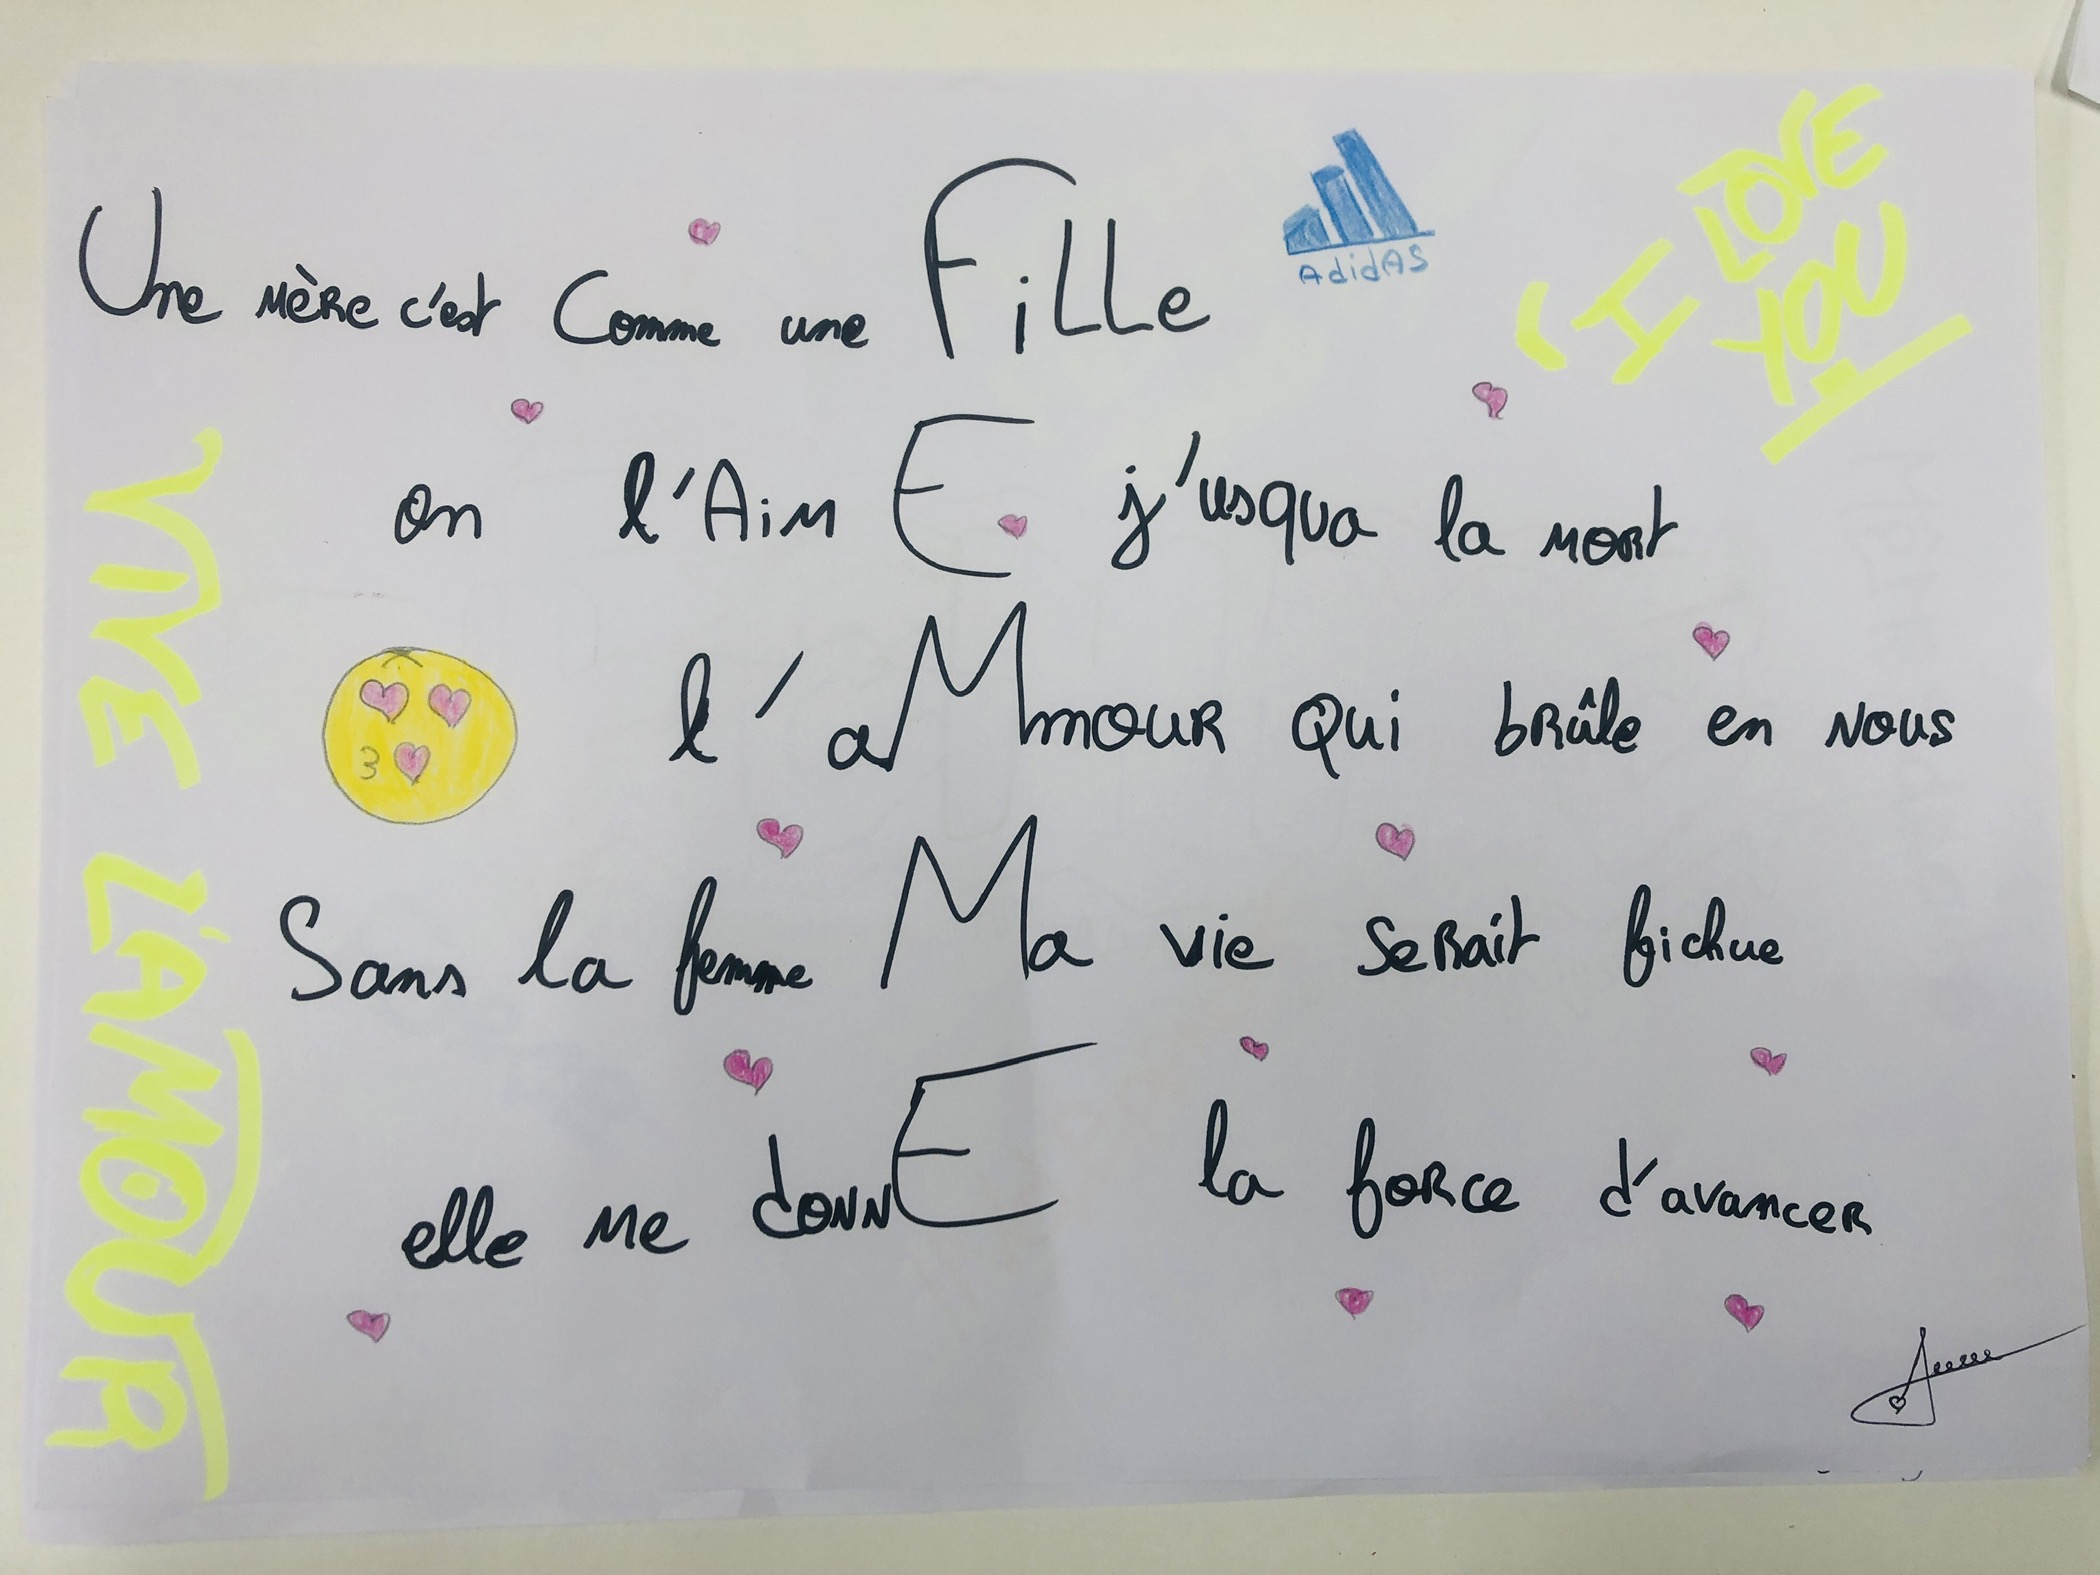 Une mère c'est Comme une FiLLe
AdidAS
"I LOVE
YOU
on l'AimE j'usqua la mort
l'aMmour Qui brûle en nous
Sans la femme Ma vie serait fichue
elle me donnE la force d'avancer
VIVE L'AMOUR